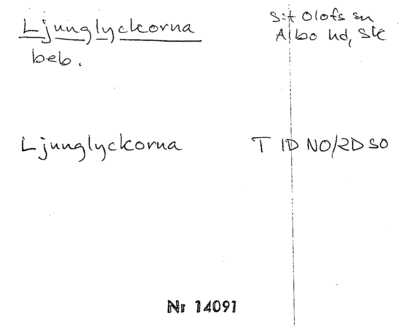 Ljunglyckorna
beb.
S:t Olofs sn
Albo hd, Sk
Ljunglyckorna
T 1D NO/2D SO
Nr 14091